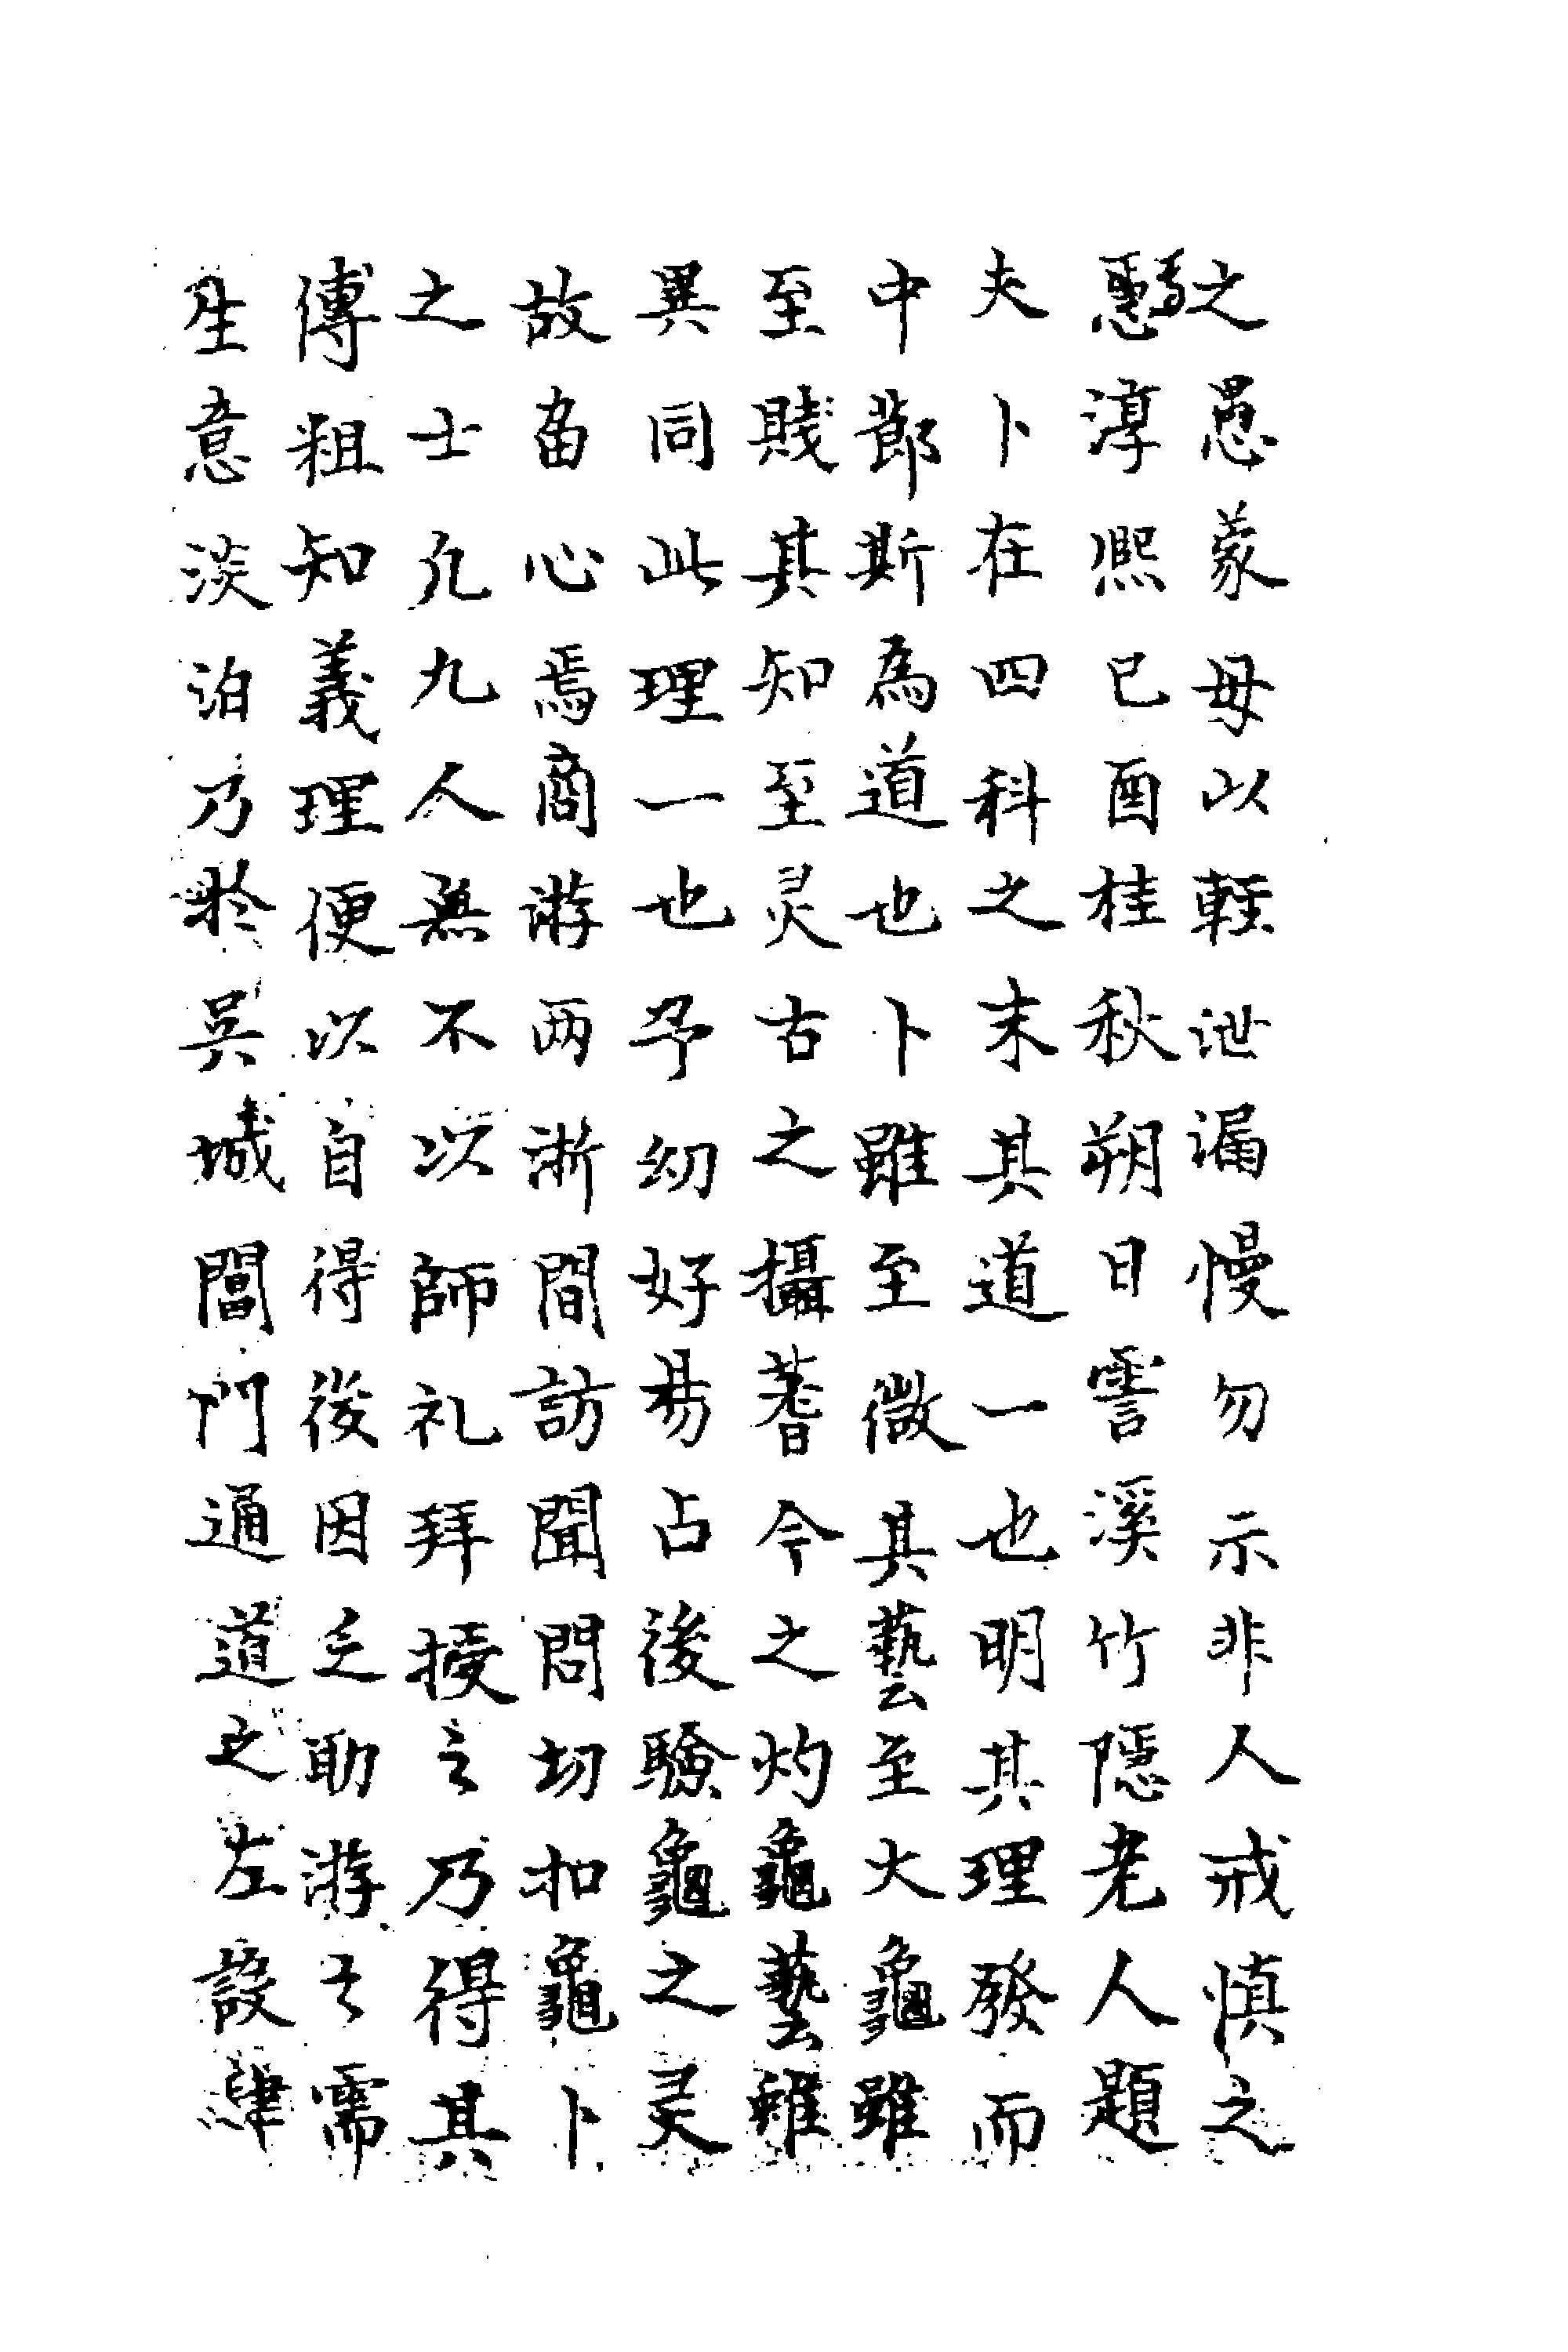 之愚蒙毋以輕泄漏慢勿示非人戒慎之
淳熈已酉桂秋朔日霅溪竹隱老人題
夫卜在四科之末其道一也明其理發而
中節斯為道也卜雖至微其藝至大龜雖
至賤其知至灵古之攝蓍今之灼龜藝雖
異同此理一也予幼好易占後驗龜之灵
故畱心焉商游两浙間訪聞問切扣龜卜
之士凢九人無不以師礼拜授之乃得其
傳粗知義理便以自得後因乏助游之需
生意淡泊乃於吳城閶門通道之左設肆